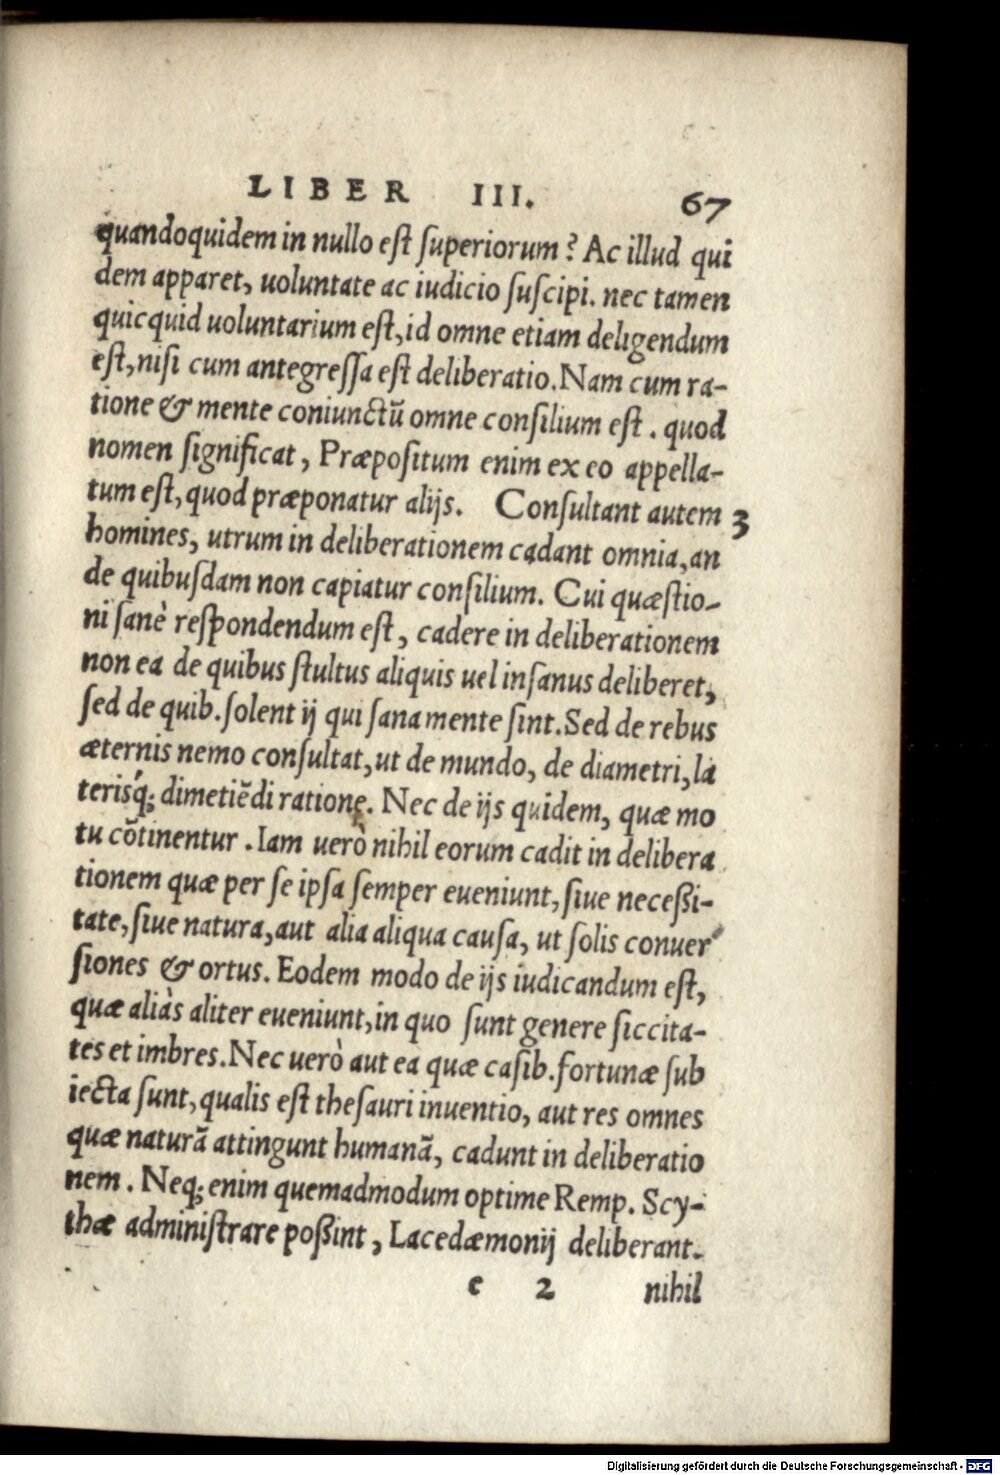 LIBER III. 67
quandoquidem in nullo eſt ſuperiorum? Ac illud qui
dem apparet, uoluntate ac iudicio ſuſcipi. nec tamen
quicquid uoluntarium eſt, id omne etiam deligendum
eſt, niſi cum antegreſſa eſt deliberatio. Nam cum ra-
tione & mente coniunctũ omne conſilium eſt. quod
nomen ſignificat, Præpoſitum enim ex eo appella-
tum eſt, quod præponatur alijs. Conſultant autem 3
homines, utrum in deliberationem cadant omnia, an
de quibuſdam non capiatur conſilium. Cui quæſtio-
ni ſanè reſpondendum eſt, cadere in deliberationem
non ea de quibus ſtultus aliquis uel inſanus deliberet,
ſed de quib. ſolent ij qui ſana mente ſint. Sed de rebus
æternis nemo conſultat, ut de mundo, de diametri, la
terisq́; dimetiẽdi ratione. Nec de ijs quidem, quæ mo
tu cõtinentur. Iam uerò nihil eorum cadit in delibera
tionem quæ per ſe ipſa ſemper eueniunt, ſiue neceßi-
tate, ſiue natura, aut alia aliqua cauſa, ut ſolis conuer
ſiones & ortus. Eodem modo de ijs iudicandum eſt,
quæ aliàs aliter eueniunt, in quo ſunt genere ſiccita-
tes et imbres. Nec uerò aut ea quæ caſib. fortunæ ſub
iecta ſunt, qualis eſt theſauri inuentio, aut res omnes
quæ naturã attingunt humanã, cadunt in deliberatio
nem. Neq; enim quemadmodum optime Remp. Scy-
thæ adminiſtrare poßint, Lacedæmonij deliberant.
e 2 nihil
Digitalisierung gefördert durch die Deutsche Forschungsgemeinschaft - DFG